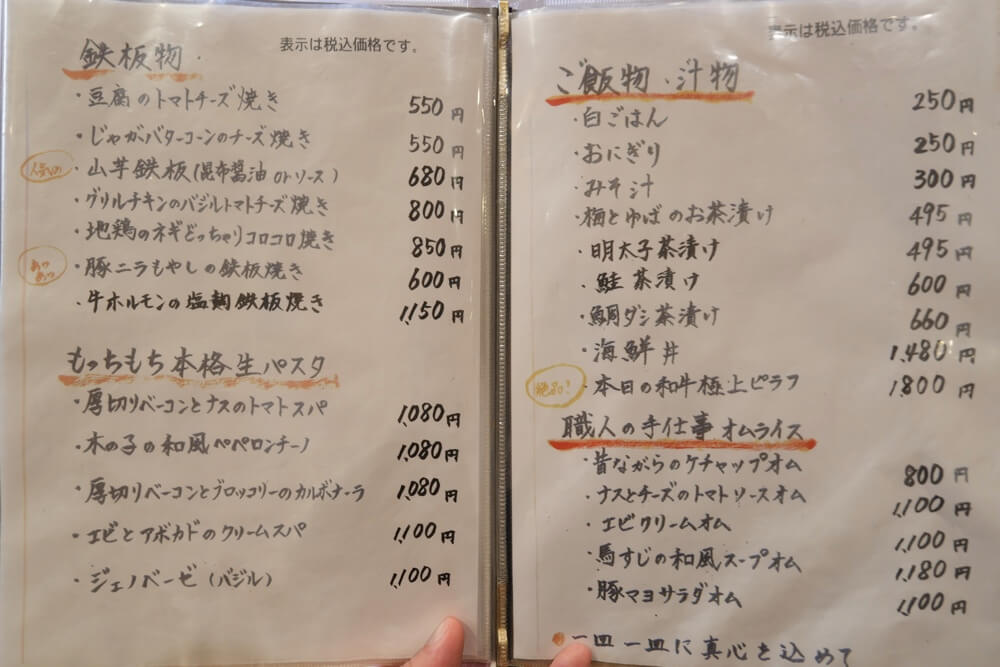 表示は税込価格です。
鉄板物
・豆腐のトマトチーズ焼き 550円
・じゃがバターコーンのチーズ焼き 550円
人気の ・山芋鉄板(昆布醤油 or ソース) 680円
・グリルチキンのバジルトマトチーズ焼き 800円
・地鶏のネギどっちゃりコロコロ焼き 850円
あつあつ ・豚ニラもやしの鉄板焼き 600円
・牛ホルモンの塩麹鉄板焼き 1,150円
もっちもち本格生パスタ
・厚切りベーコンとナスのトマトスパ 1,080円
・木の子の和風ペペロンチーノ 1,080円
・厚切りベーコンとブロッコリーのカルボナーラ 1,080円
・エビとアボカドのクリームスパ 1,100円
・ジェノベーゼ(バジル) 1,100円
表示は税込価格です。
ご飯物・汁物
・白ごはん 250円
・おにぎり 250円
・みそ汁 300円
・梅とゆばのお茶漬け 495円
・明太子茶漬け 495円
・鮭茶漬け 600円
・鯛ダシ茶漬け 660円
・海鮮丼 1,480円
絶品! ・本日の和牛極上ピラフ 1,800円
職人の手仕事オムライス
・昔ながらのケチャップオム 800円
・ナスとチーズのトマトソースオム 1,100円
・エビクリームオム 1,100円
・馬すじの和風スープオム 1,180円
・豚マヨサラダオム 1,100円
一皿一皿に真心を込めて